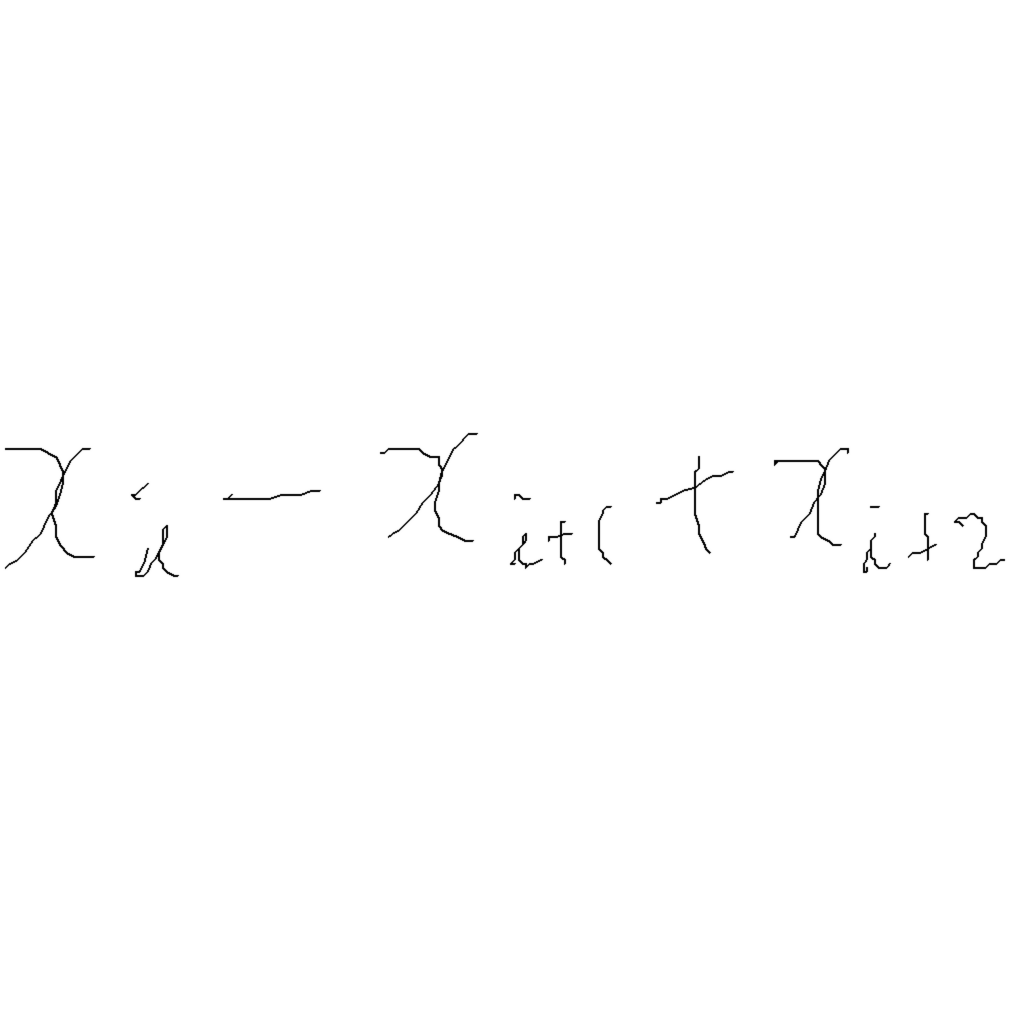 x_i - x_{i+1} + x_{i+2}